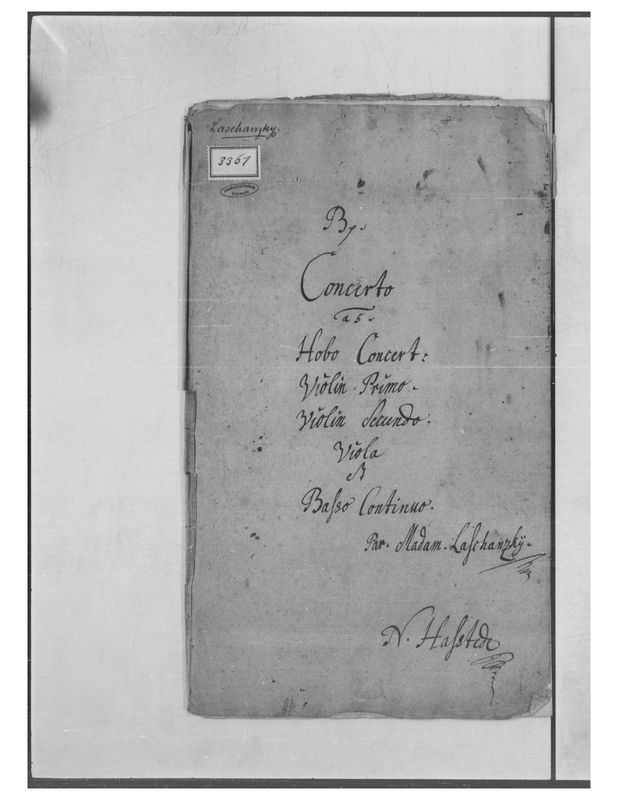 Laschanzky.
3361
B♭.
Concerto
a 5.
Hobo Concert:
Violin. Primo.
Violin Secundo.
Viola
et
Baſso Continuo.
Par. Madam. Laſchanzkÿ.
N. Haſstede